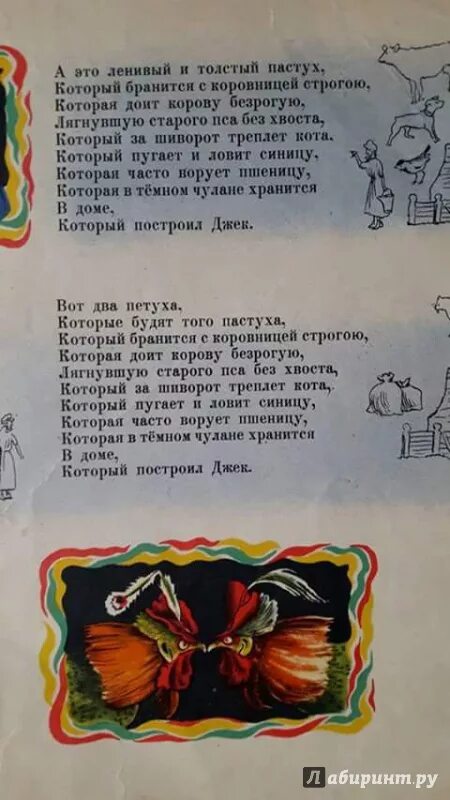 А это ленивый и толстый пастух,
Который бранится с коровницей строгою,
Которая доит корову безрогую,
Лягнувшую старого пса без хвоста,
Который за шиворот треплет кота.
Который пугает и ловит синицу,
Которая часто ворует пшеницу,
Которая в тёмном чулане хранится
В доме,
Который построил Джек.
Вот два петуха,
Которые будят того пастуха,
Который бранится с коровницей строгою,
Которая доит корову безрогую,
Лягнувшую старого пса без хвоста,
Который за шиворот треплет кота,
Который пугает и ловит синицу,
Которая часто ворует пшеницу,
Которая в тёмном чулане хранится
В доме,
Который построил Джек.
Лабиринт.ру